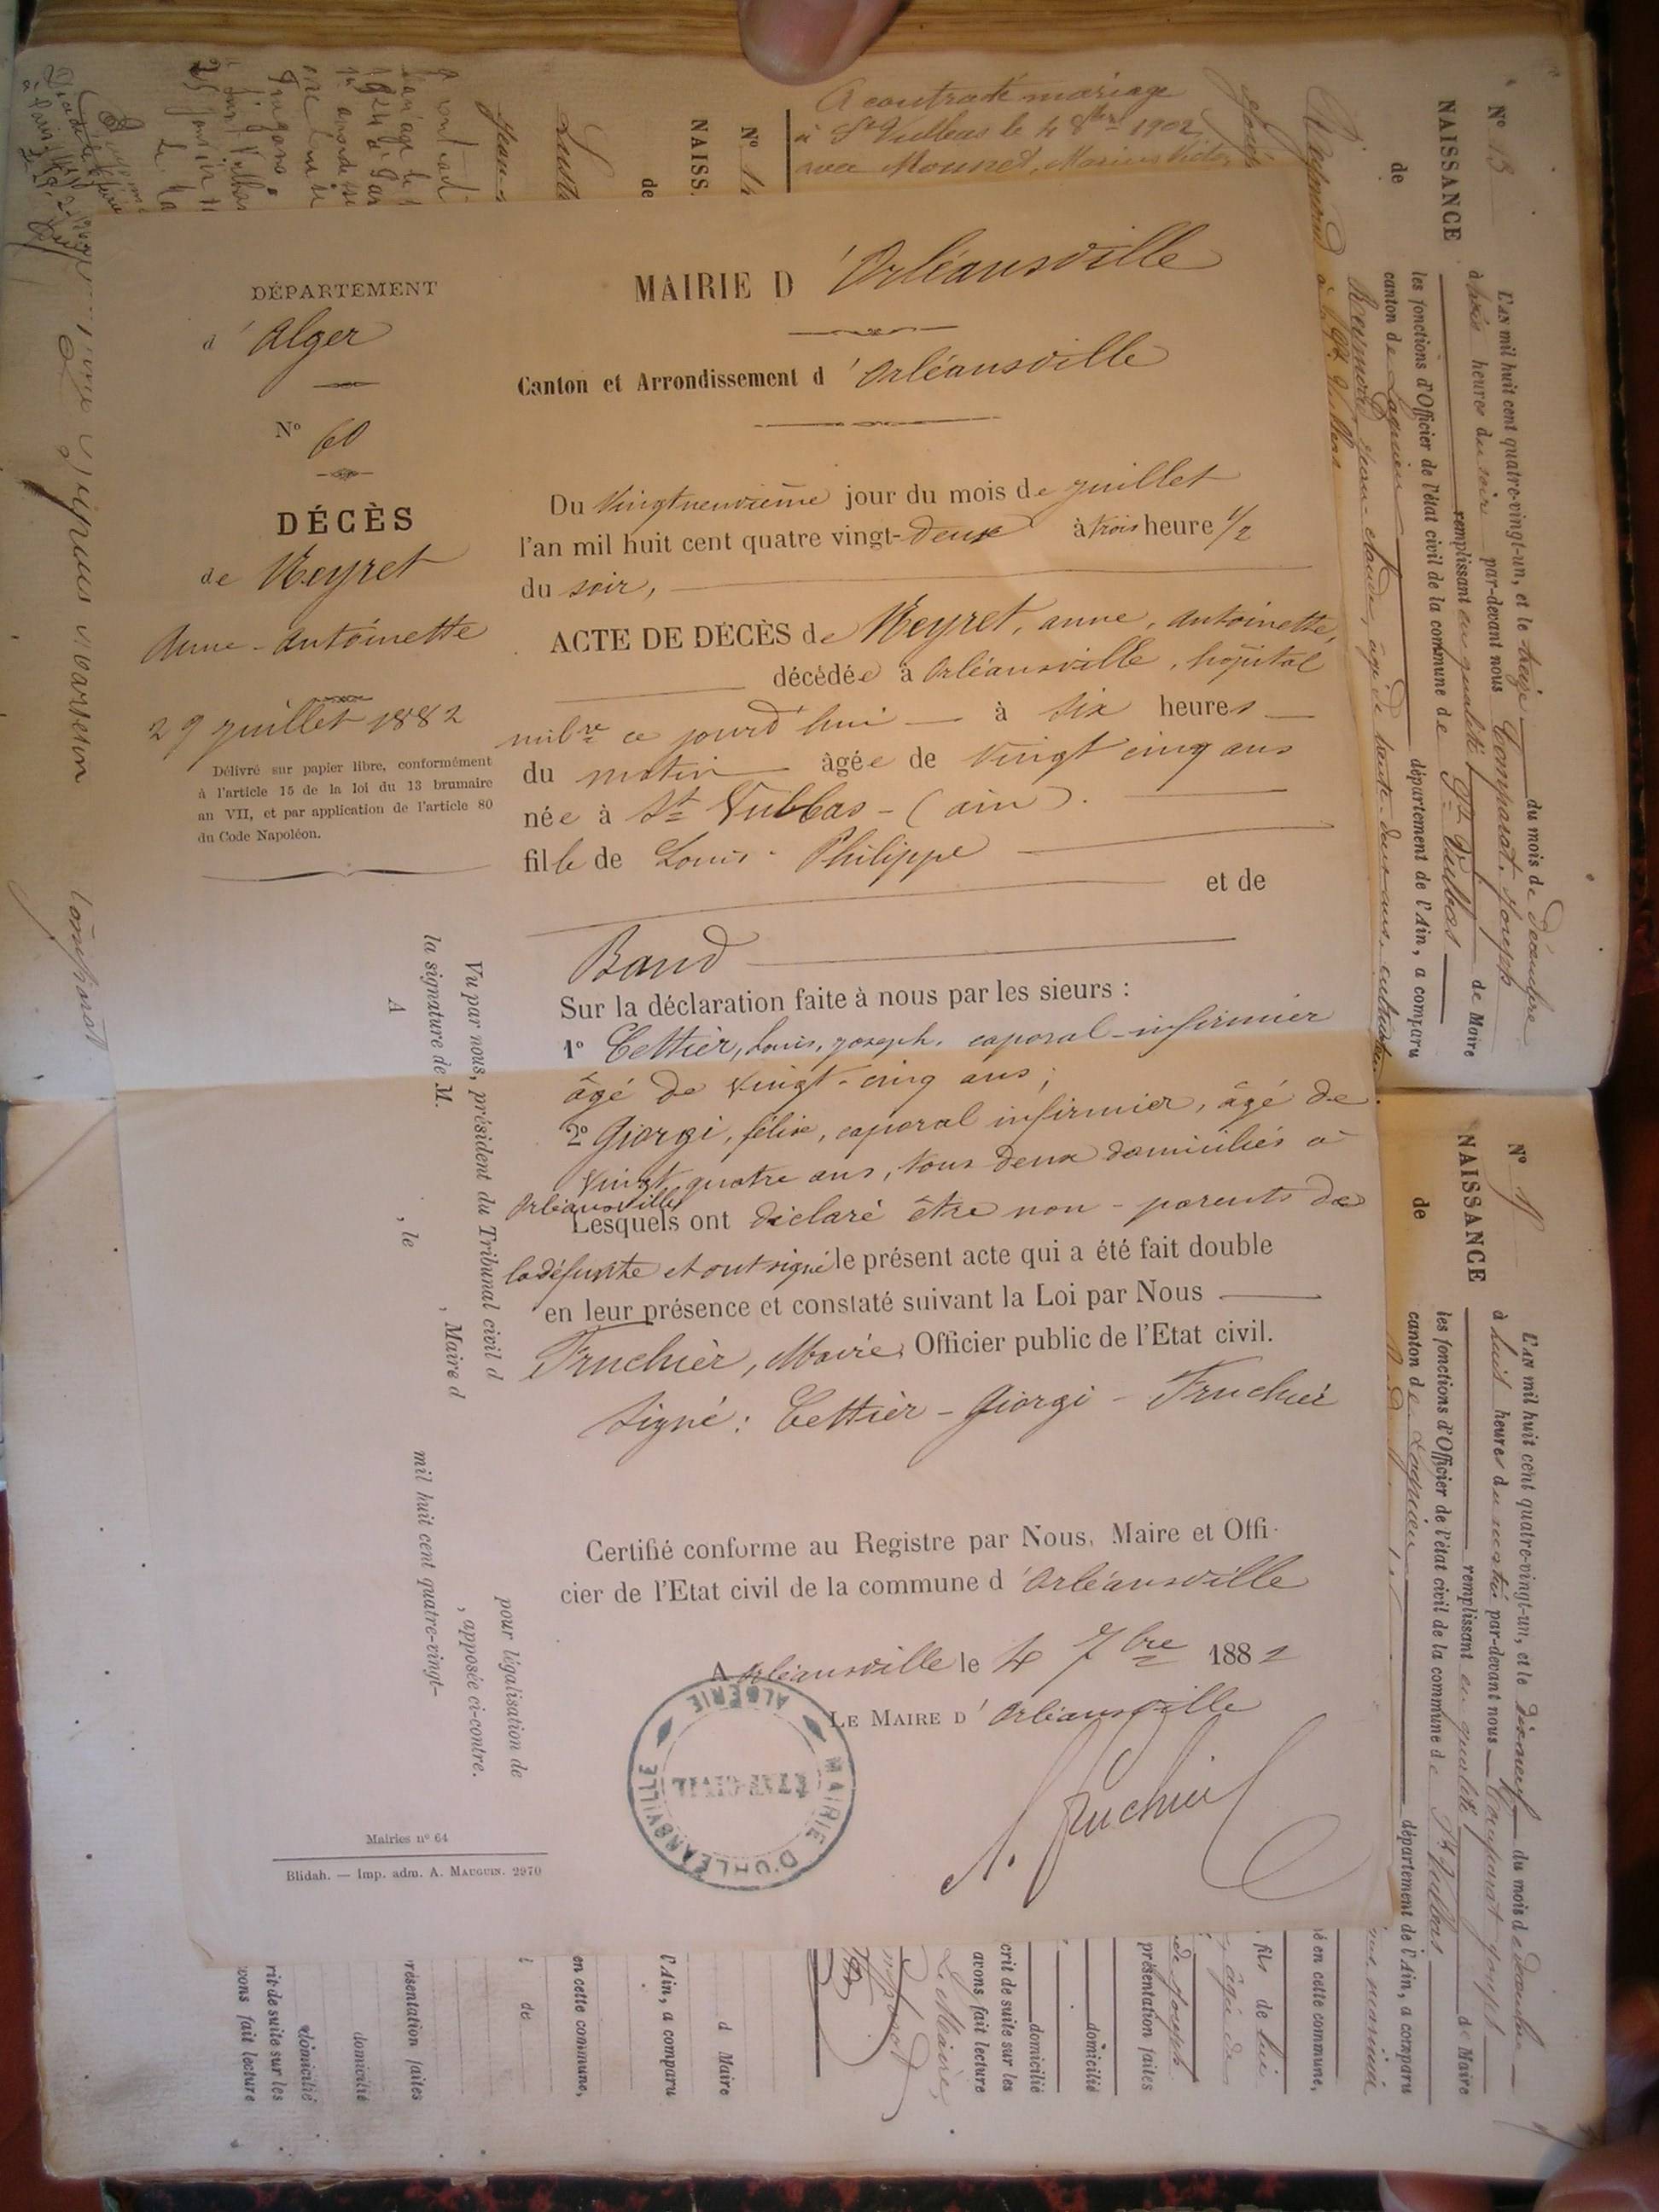 DÉPARTEMENT
d'Alger
N° 60
DÉCÈS
de Veyret
Anne-Antoinette
29 juillet 1882
Délivré sur papier libre, conformément
à l'article 15 de la loi du 13 brumaire
an VII, et par application de l'article 80
du Code Napoléon.
MAIRIE D'Orléansville
Canton et Arrondissement d'Orléansville
Du vingtneuvième jour du mois de juillet
l'an mil huit cent quatre vingt-deux à trois heure 1/2
du soir,
ACTE DE DÉCÈS de Veyret, anne, antoinette,
décédée à Orléansville, hopital
milre ce jourd'hui à six heures
du matin âgée de vingt cinq ans
née à St Vulbas - (ain).
fille de Louis - Philippe
et de
Band
Sur la déclaration faite à nous par les sieurs :
1° Cettier, Louis, joseph, caporal-infirmier
âgé de vingt-cinq ans ;
2° Giorgi, félix, caporal infirmier, âgé de
vingt quatre ans, tous deux domiciliés à
Orléansville
Lesquels ont déclaré être non-parents de
la défunte et ont signé le présent acte qui a été fait double
en leur présence et constaté suivant la Loi par Nous
Fruchier, Maire, Officier public de l'Etat civil.
Signé : Cettier - Giorgi - Fruchier
Certifié conforme au Registre par Nous, Maire et Offi-
cier de l'Etat civil de la commune d'Orléansville
A Orléansville le 4 7bre 1882
LE MAIRE D'Orléansville
Fruchier
MAIRIE D'ORLÉANSVILLE
ALGERIE
ETAT-CIVIL
Vu par nous, président du Tribunal civil d
pour légalisation de
la signature de M. , Maire d , apposée ci-contre.
A , le mil huit cent quatre-vingt-
Mairies n° 64
Blidah. — Imp. adm. A. MAUGUIN. 2970
A contracté mariage
à St Vulbas le 4 8bre 1902
avec Mounet, Marius Victor
N° 13
NAISSANCE
de
L'AN mil huit cent quatre-vingt-un, et le treize du mois de décembre
à trois heures du soir par-devant nous Comparat, Joseph
remplissant en qualité de Maire
les fonctions d'Officier de l'état civil de la commune de St Vulbas
canton de Lagnieu département de l'Ain, a comparu
Reymond jean-claude, âgé de trente-deux ans, cultivateur
N°
NAISSANCE
de
L'AN mil huit cent quatre-vingt-un, et le dixneuf du mois de décembre
à huit heures du matin par-devant nous Comparat Joseph
remplissant en qualité de Maire
les fonctions d'Officier de l'état civil de la commune de St Vulbas
canton de Lagnieu département de l'Ain, a comparu
é en cette commune,
fils de lui
âgée de
de Joseph
présentation faites
domicilié
domicilié
crit de suite sur les
avons fait lecture
Le Maire,
d Maire
l'Ain, a comparu
en cette commune,
de
résentation faites
domicilié
domicilié
rit de suite sur les
vons fait lecture
N° 14
NAISS.
de